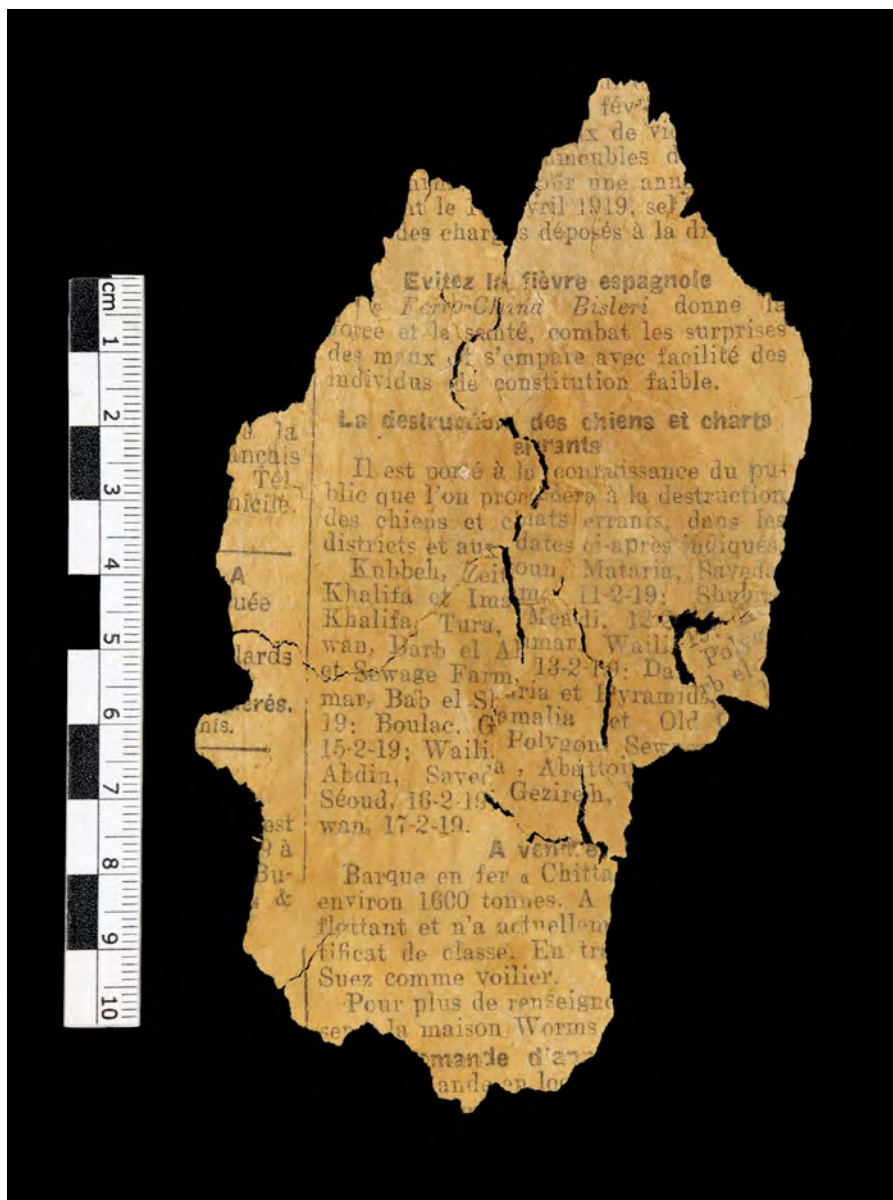 fév
x de vi
meubles d
une ann
nt le 1 vril 1919, sel
des charges déposés à la d
Evitez la fièvre espagnole
Le Ferro-China Bisleri donne la
force et la santé, combat les surprises
des maux et s'empare avec facilité des
individus de constitution faible.
La destruction des chiens et charts
errants
Il est porté à la connaissance du pu-
blic que l'on procédera à la destruction
des chiens et chats errants, dans les
districts et aux dates ci-après indiqués
Kubbeh, Zeitoun, Mataria, Sayeda
Khalifa et Imam 11-2-19; Shubra
Khalifa, Tura, Meadi, 12
wan, Darb el A mar, Waili
et Sewage Farm, 13-2-19; Da
mar, Bab el Sh aria et Pyramids
19; Boulac, G amalia et Old
15-2-19; Waili, Polygon, Sew
Abdin, Sayed a, Abattoi
Séoud, 16-2-19; Gezireh,
wan, 17-2-19.
A vendre
Barque en fer a Chitta
environ 1600 tonnes. A
flottant et n'a actuellem
tificat de classe. En tr
Suez comme voilier.
Pour plus de renseigne
ser la maison Worms
mande d'a
ande en lo
à la
ançais
Tél.
micile.
A
uée
lards
érés.
nis.
est
9 à
Bu-
s &
cm
1
2
3
4
5
6
7
8
9
10